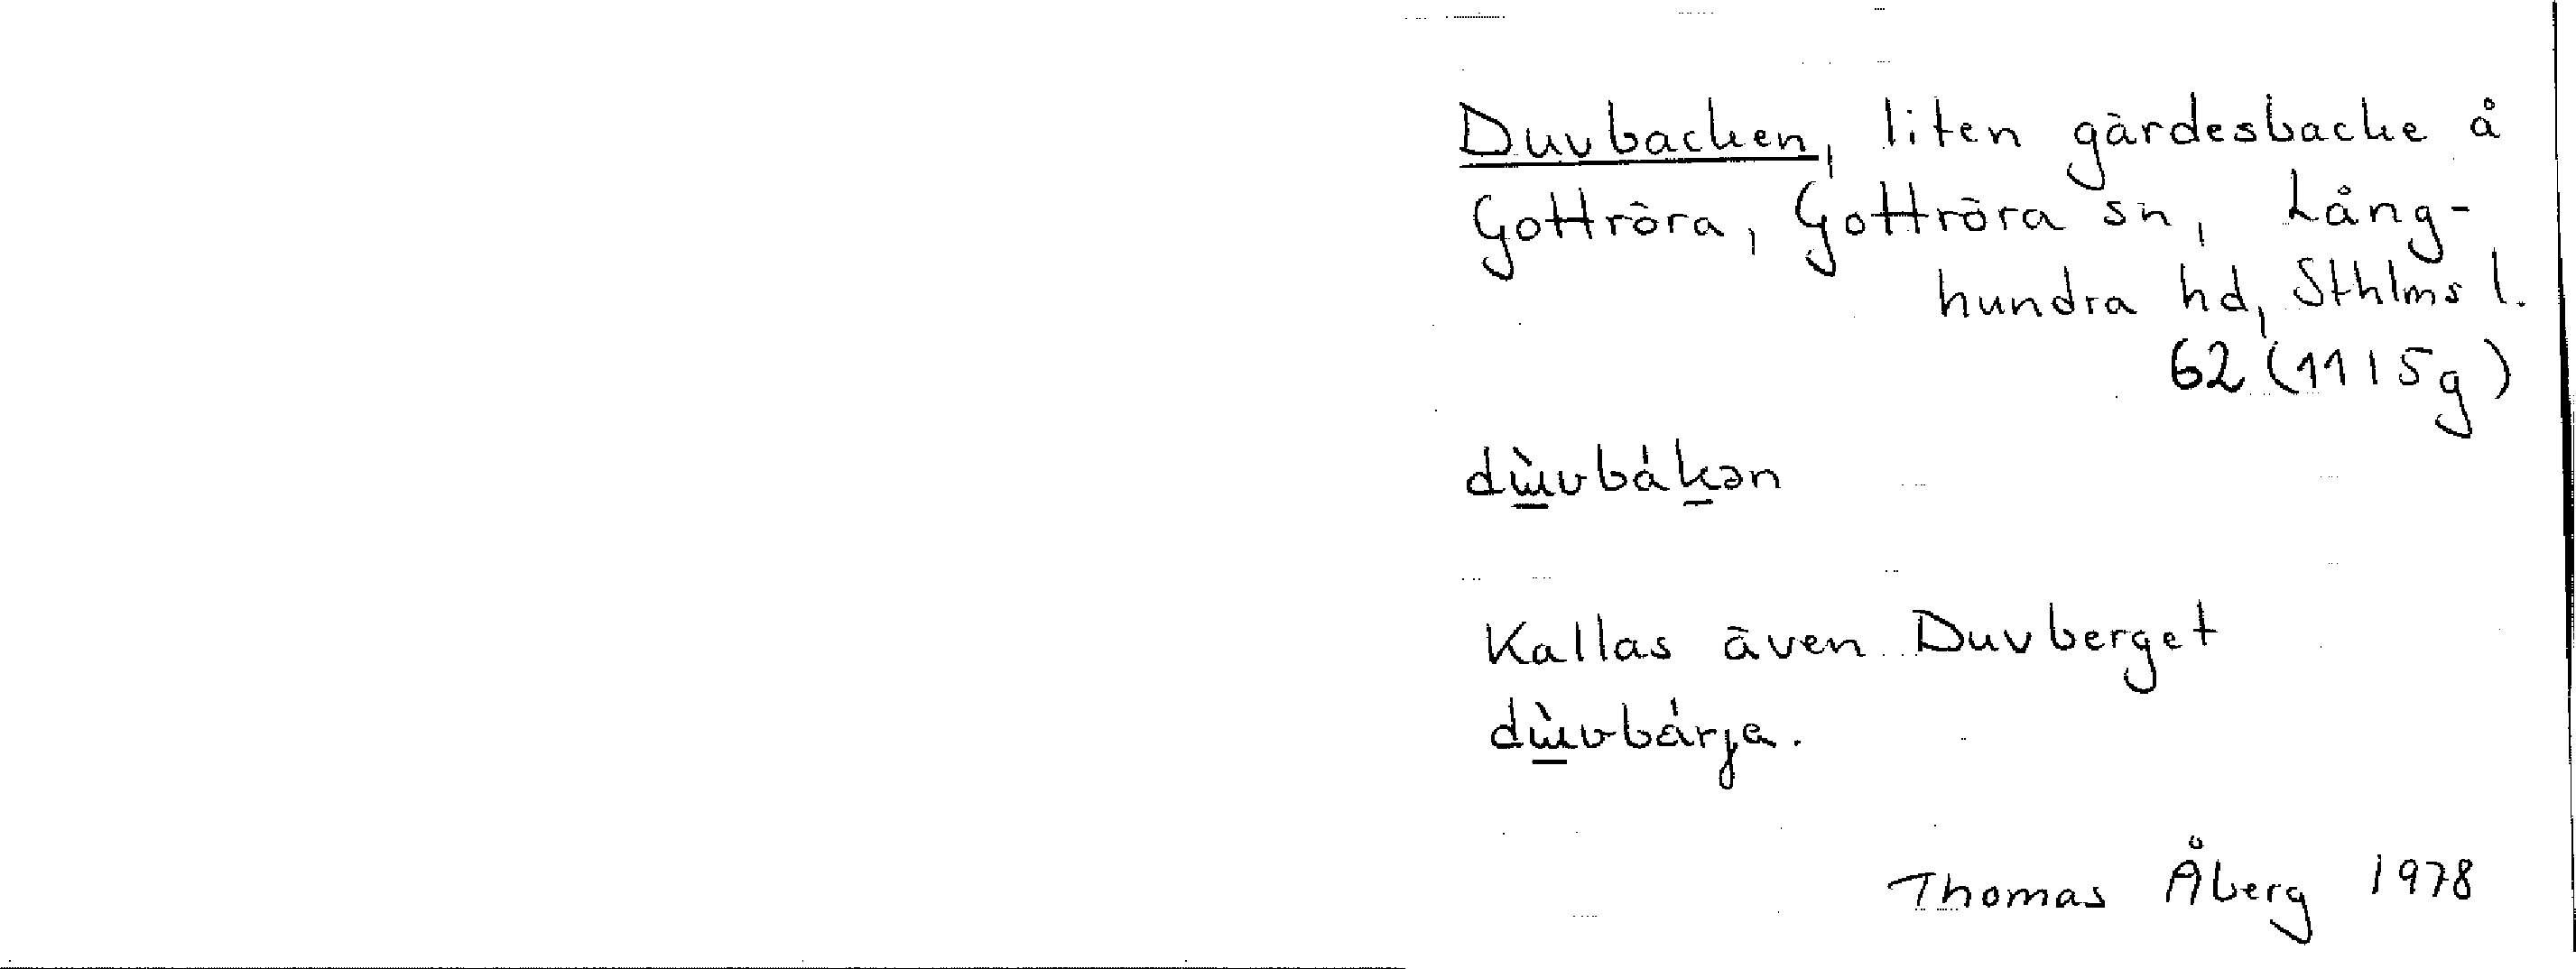 Duvbacken, liten gärdesbacke å
Gottröra, Gottröra sn, Lång-
hundra hd, Sthlms l.
62 (1115g)
dɯ̀vbákən
Kallas även Duvberget
dɯ̀vbárja.
Thomas Åberg 1978